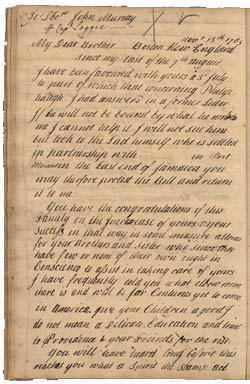 To Doctr John Murray
pr Capt Logie
Novr 13th 1765
My Dear Brother Boston New England
Since my last of the 7th August
I have been favoured with yours 25th July
part of which that concerning Philip
haugh I had answered in a former Letter
If he will not be bound by what he wrote
me I cannot help it I will not see him
but look to the Lad himself who is settled
in partnership with in Port
the East end of Jamaica you
may therefore protest the Bill and return
it to me
You have the congratulations of this
Family on the Increase of yours & your
Success in that way in some measure attones
for your Brothers and Sister who since they
have few or none of their own ought in
Conscience to assist in taking care of yours
I have frequently told you what elbow room
there is and will be for Centuries yet to come
in America, give your Children a good I
do not mean a Delicate Education and trust
to Providence & your Friends for the rest.
You will have heard long before this
reaches you what a Spirit the Stamp act